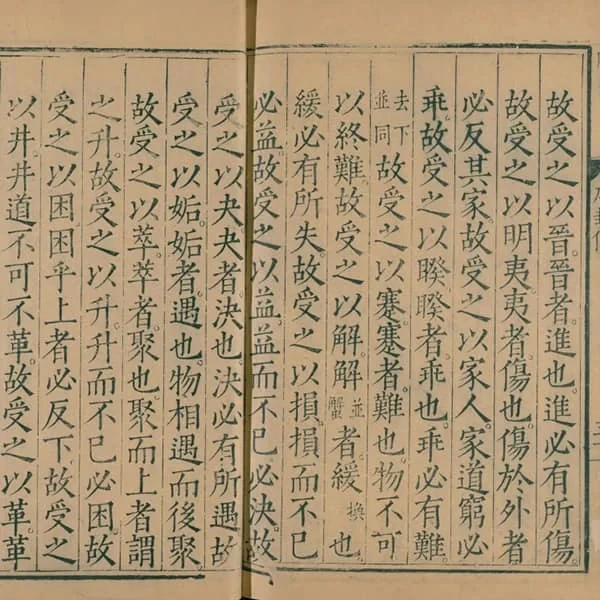 故受之以晉。晉者進也。進必有所傷。
故受之以明夷。夷者傷也。傷於外者
必反其家。故受之以家人。家道窮必
乖。故受之以睽。睽者乖也。乖必有難。
去下並同故受之以蹇。蹇者難也。物不可
以終難。故受之以解。解並蟹者緩換也
緩必有所失。故受之以損。損而不已
必益。故受之以益。益而不已必決。故
受之以夬。夬者決也。決必有所遇。故
受之以姤。姤者遇也。物相遇而後聚。
故受之以萃。萃者聚也。聚而上者謂
之升。故受之以升。升而不已必困。故
受之以困。困乎上者必反下。故受之
以井。井道不可不革。故受之以革。革